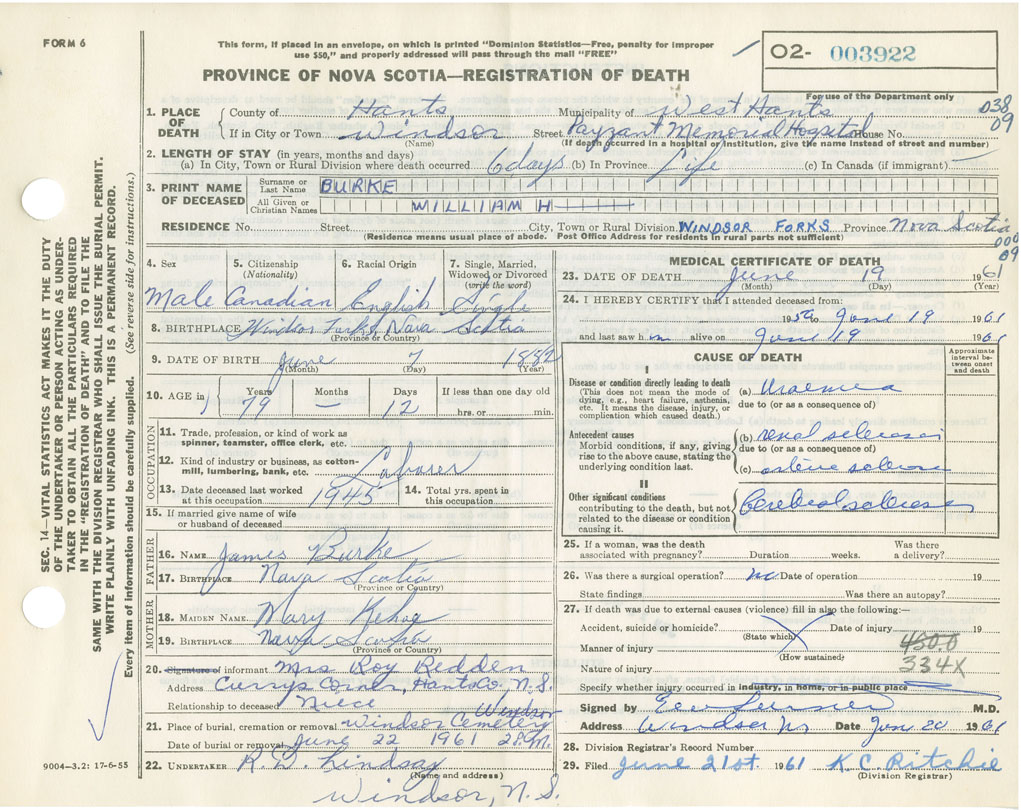 FORM 6
This form, if placed in an envelope, on which is printed "Dominion Statistics—Free, penalty for improper
use $50," and properly addressed will pass through the mail "FREE"
PROVINCE OF NOVA SCOTIA—REGISTRATION OF DEATH
02- 003922
For use of the Department only
038
09
1. PLACE OF DEATH
County of Hants Municipality of West Hants
If in City or Town Windsor Street Payzant Memorial Hospital House No.
(Name) (If death occurred in a hospital or institution, give the name instead of street and number)
2. LENGTH OF STAY (in years, months and days)
(a) In City, Town or Rural Division where death occurred 6 days (b) In Province Life (c) In Canada (if immigrant) —
3. PRINT NAME OF DECEASED
Surname or Last Name BURKE
All Given or Christian Names WILLIAM H
RESIDENCE No. Street City, Town or Rural Division WINDSOR FORKS Province Nova Scotia
(Residence means usual place of abode. Post Office Address for residents in rural parts not sufficient)
000
09
4. Sex 5. Citizenship (Nationality) 6. Racial Origin 7. Single, Married, Widowed or Divorced (write the word)
Male Canadian English Single
8. BIRTHPLACE Windsor Forks, Nova Scotia
(Province or Country)
9. DATE OF BIRTH June 7 1882
(Month) (Day) (Year)
10. AGE in Years Months Days If less than one day old
79 — 12 hrs. or min.
OCCUPATION
11. Trade, profession, or kind of work as
spinner, teamster, office clerk, etc.
12. Kind of industry or business, as cotton-
mill, lumbering, bank, etc. Labourer
13. Date deceased last worked at this occupation 1945 14. Total yrs. spent in this occupation
15. If married give name of wife
or husband of deceased
FATHER
16. NAME James Burke
17. BIRTHPLACE Nova Scotia
(Province or Country)
MOTHER
18. MAIDEN NAME Mary Kehoe
19. BIRTHPLACE Nova Scotia
(Province or Country)
20. Signature of informant Mrs Roy Redden
Address Currys Corner, Hants Co, N.S.
Relationship to deceased Niece
21. Place of burial, cremation or removal Windsor Cemetery Windsor
Date of burial or removal June 22 1961 2 P.M.
22. UNDERTAKER R. D. Lindsay
(Name and address)
Windsor, N.S.
MEDICAL CERTIFICATE OF DEATH
23. DATE OF DEATH June 19 1961
(Month) (Day) (Year)
24. I HEREBY CERTIFY that I attended deceased from:
1959 to June 19 1961
and last saw h im alive on June 19 1961
CAUSE OF DEATH
Approximate interval between onset and death
I
Disease or condition directly leading to death
(This does not mean the mode of
dying, e.g., heart failure, asthenia,
etc. It means the disease, injury, or
complication which caused death.)
(a) Uraemia
due to (or as a consequence of)
Antecedent causes
Morbid conditions, if any, giving
rise to the above cause, stating the
underlying condition last.
(b) renal sclerosis
due to (or as a consequence of)
(c) arterio sclerosis
II
Other significant conditions
contributing to the death, but not
related to the disease or condition
causing it.
Cerebral sclerosis
25. If a woman, was the death associated with pregnancy? Duration weeks. Was there a delivery?
26. Was there a surgical operation? no Date of operation 19
State findings Was there an autopsy?
27. If death was due to external causes (violence) fill in also the following:—
Accident, suicide or homicide? Date of injury 19
(State which)
Manner of injury
(How sustained)
450.0
334X
Nature of injury
Specify whether injury occurred in industry, in home, or in public place
Signed by M.D.
Address Windsor NS Date June 20 1961
28. Division Registrar's Record Number
29. Filed June 21st. 1961 K C Ritchie
(Division Registrar)
SEC. 14—VITAL STATISTICS ACT MAKES IT THE DUTY
OF THE UNDERTAKER OR PERSON ACTING AS UNDER-
TAKER TO OBTAIN ALL THE PARTICULARS REQUIRED
IN THE "REGISTRATION OF DEATH" AND TO FILE THE
SAME WITH THE DIVISION REGISTRAR WHO SHALL ISSUE THE BURIAL PERMIT.
WRITE PLAINLY WITH UNFADING INK. THIS IS A PERMANENT RECORD.
Every item of information should be carefully supplied. (See reverse side for instructions.)
9004—3.2: 17-6-55